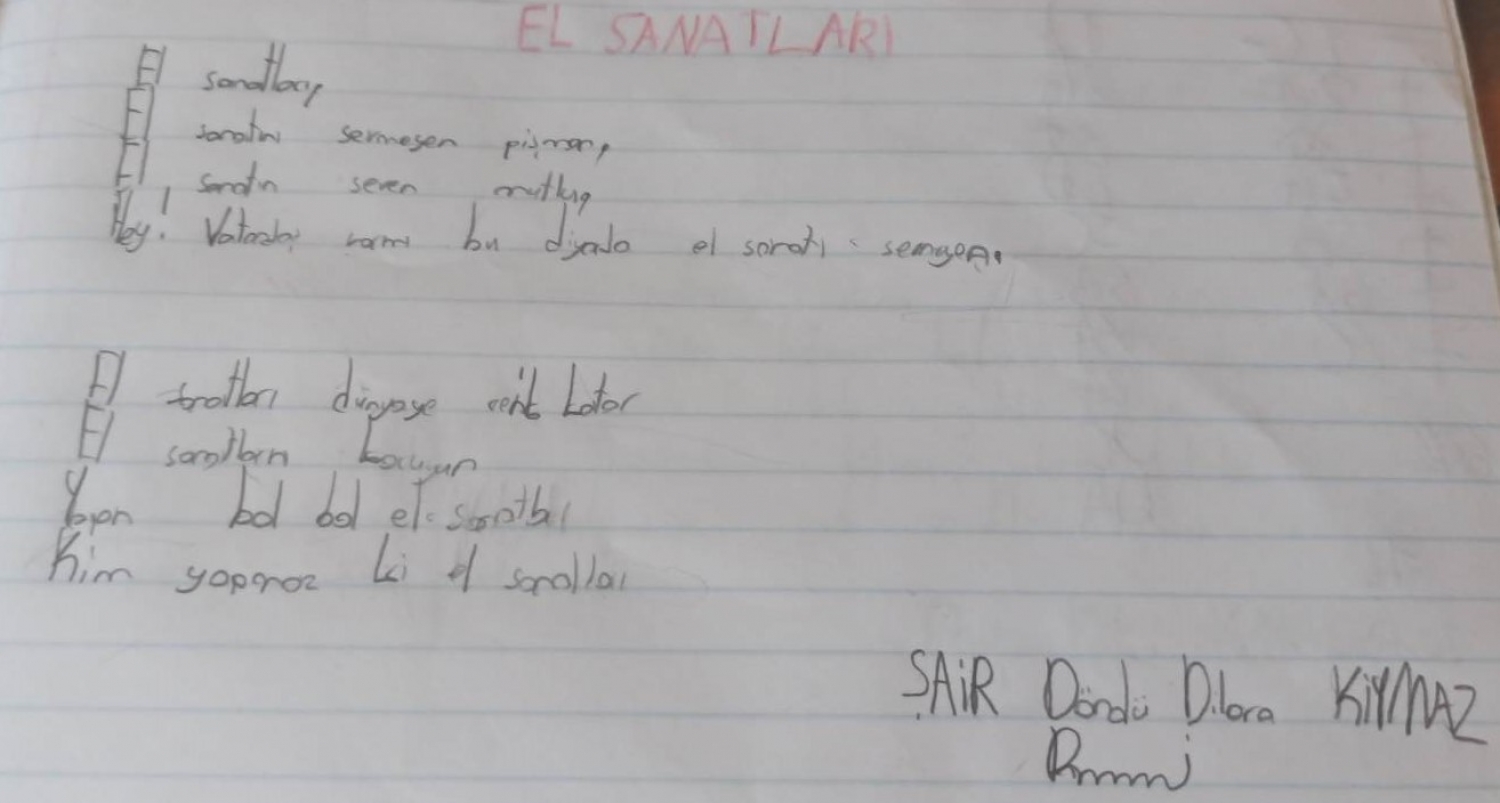 EL SANATLARI
El sanatları,
El sanatını sevmeyen pişman,
El sanatın seven mutlu,
Hey! Vatandaş varmı bu diyarda el sanatı sevmeyen.
El sanatları dünyaya renk katar
El sanatların koruyun
Yapın bol bol el sanatları
Kim yapmaz ki el sanatları
ŞAiR Döndü Dilara KIYMAZ